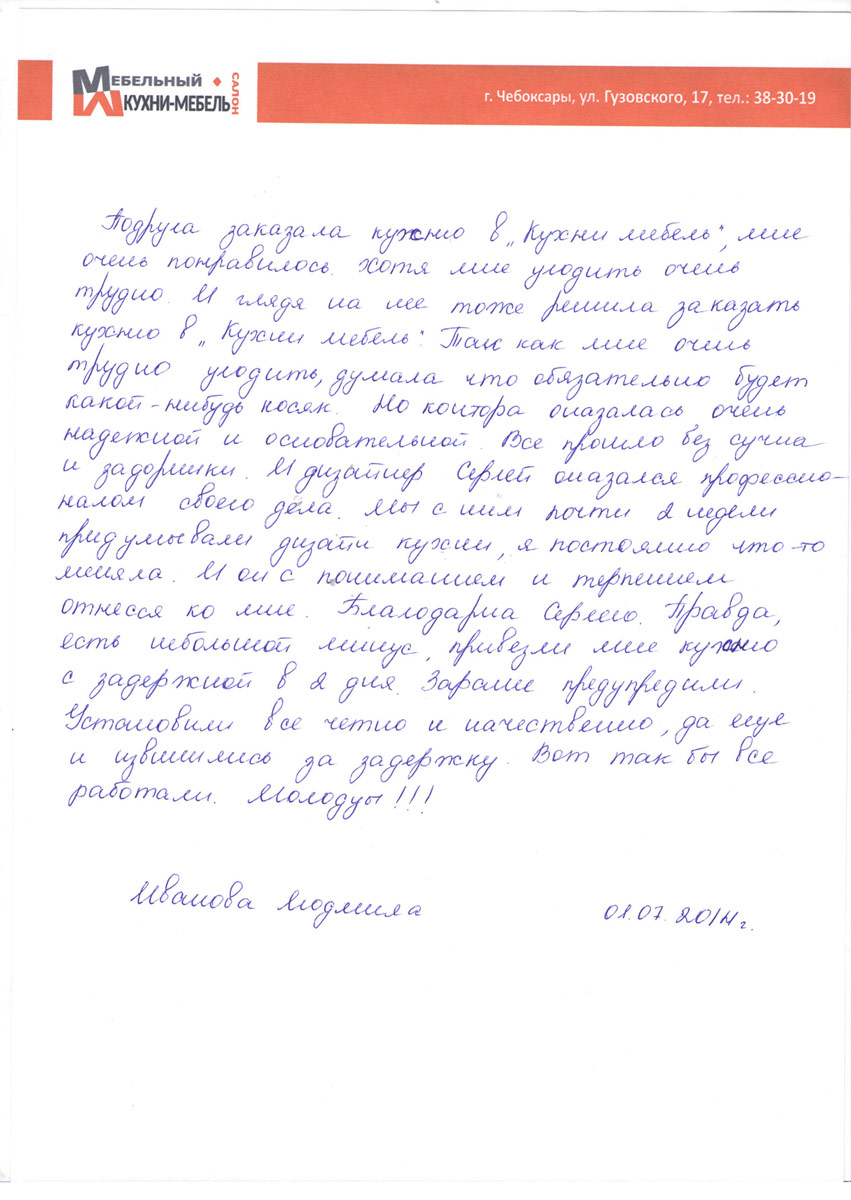 МЕБЕЛЬНЫЙ САЛОН
КУХНИ-МЕБЕЛЬ
г. Чебоксары, ул. Гузовского, 17, тел.: 38-30-19
Подруга заказала кухню в „Кухни мебель", мне
очень понравилось. Хотя мне угодить очень
трудно. И глядя на нее тоже решила заказать
кухню в „Кухни мебель". Так как мне очень
трудно угодить, думала что обязательно будет
какой-нибудь косяк. Но контора оказалась очень
надежной и основательной. Все прошло без сучка
и задоринки. И дизайнер Сергей оказался профессио-
налом своего дела. Мы с ним почти 2 недели
придумывали дизайн кухни, я постоянно что-то
меняла. И он с пониманием и терпением
отнесся ко мне. Благодарна Сергею. Правда,
есть небольшой минус, привезли мне кухню
с задержкой в 2 дня. Заранее предупредили.
Установили все четко и качественно, да еще
и извинились за задержку. Вот так бы все
работали. Молодцы!!!
Иванова Людмила
01.07.2014г.